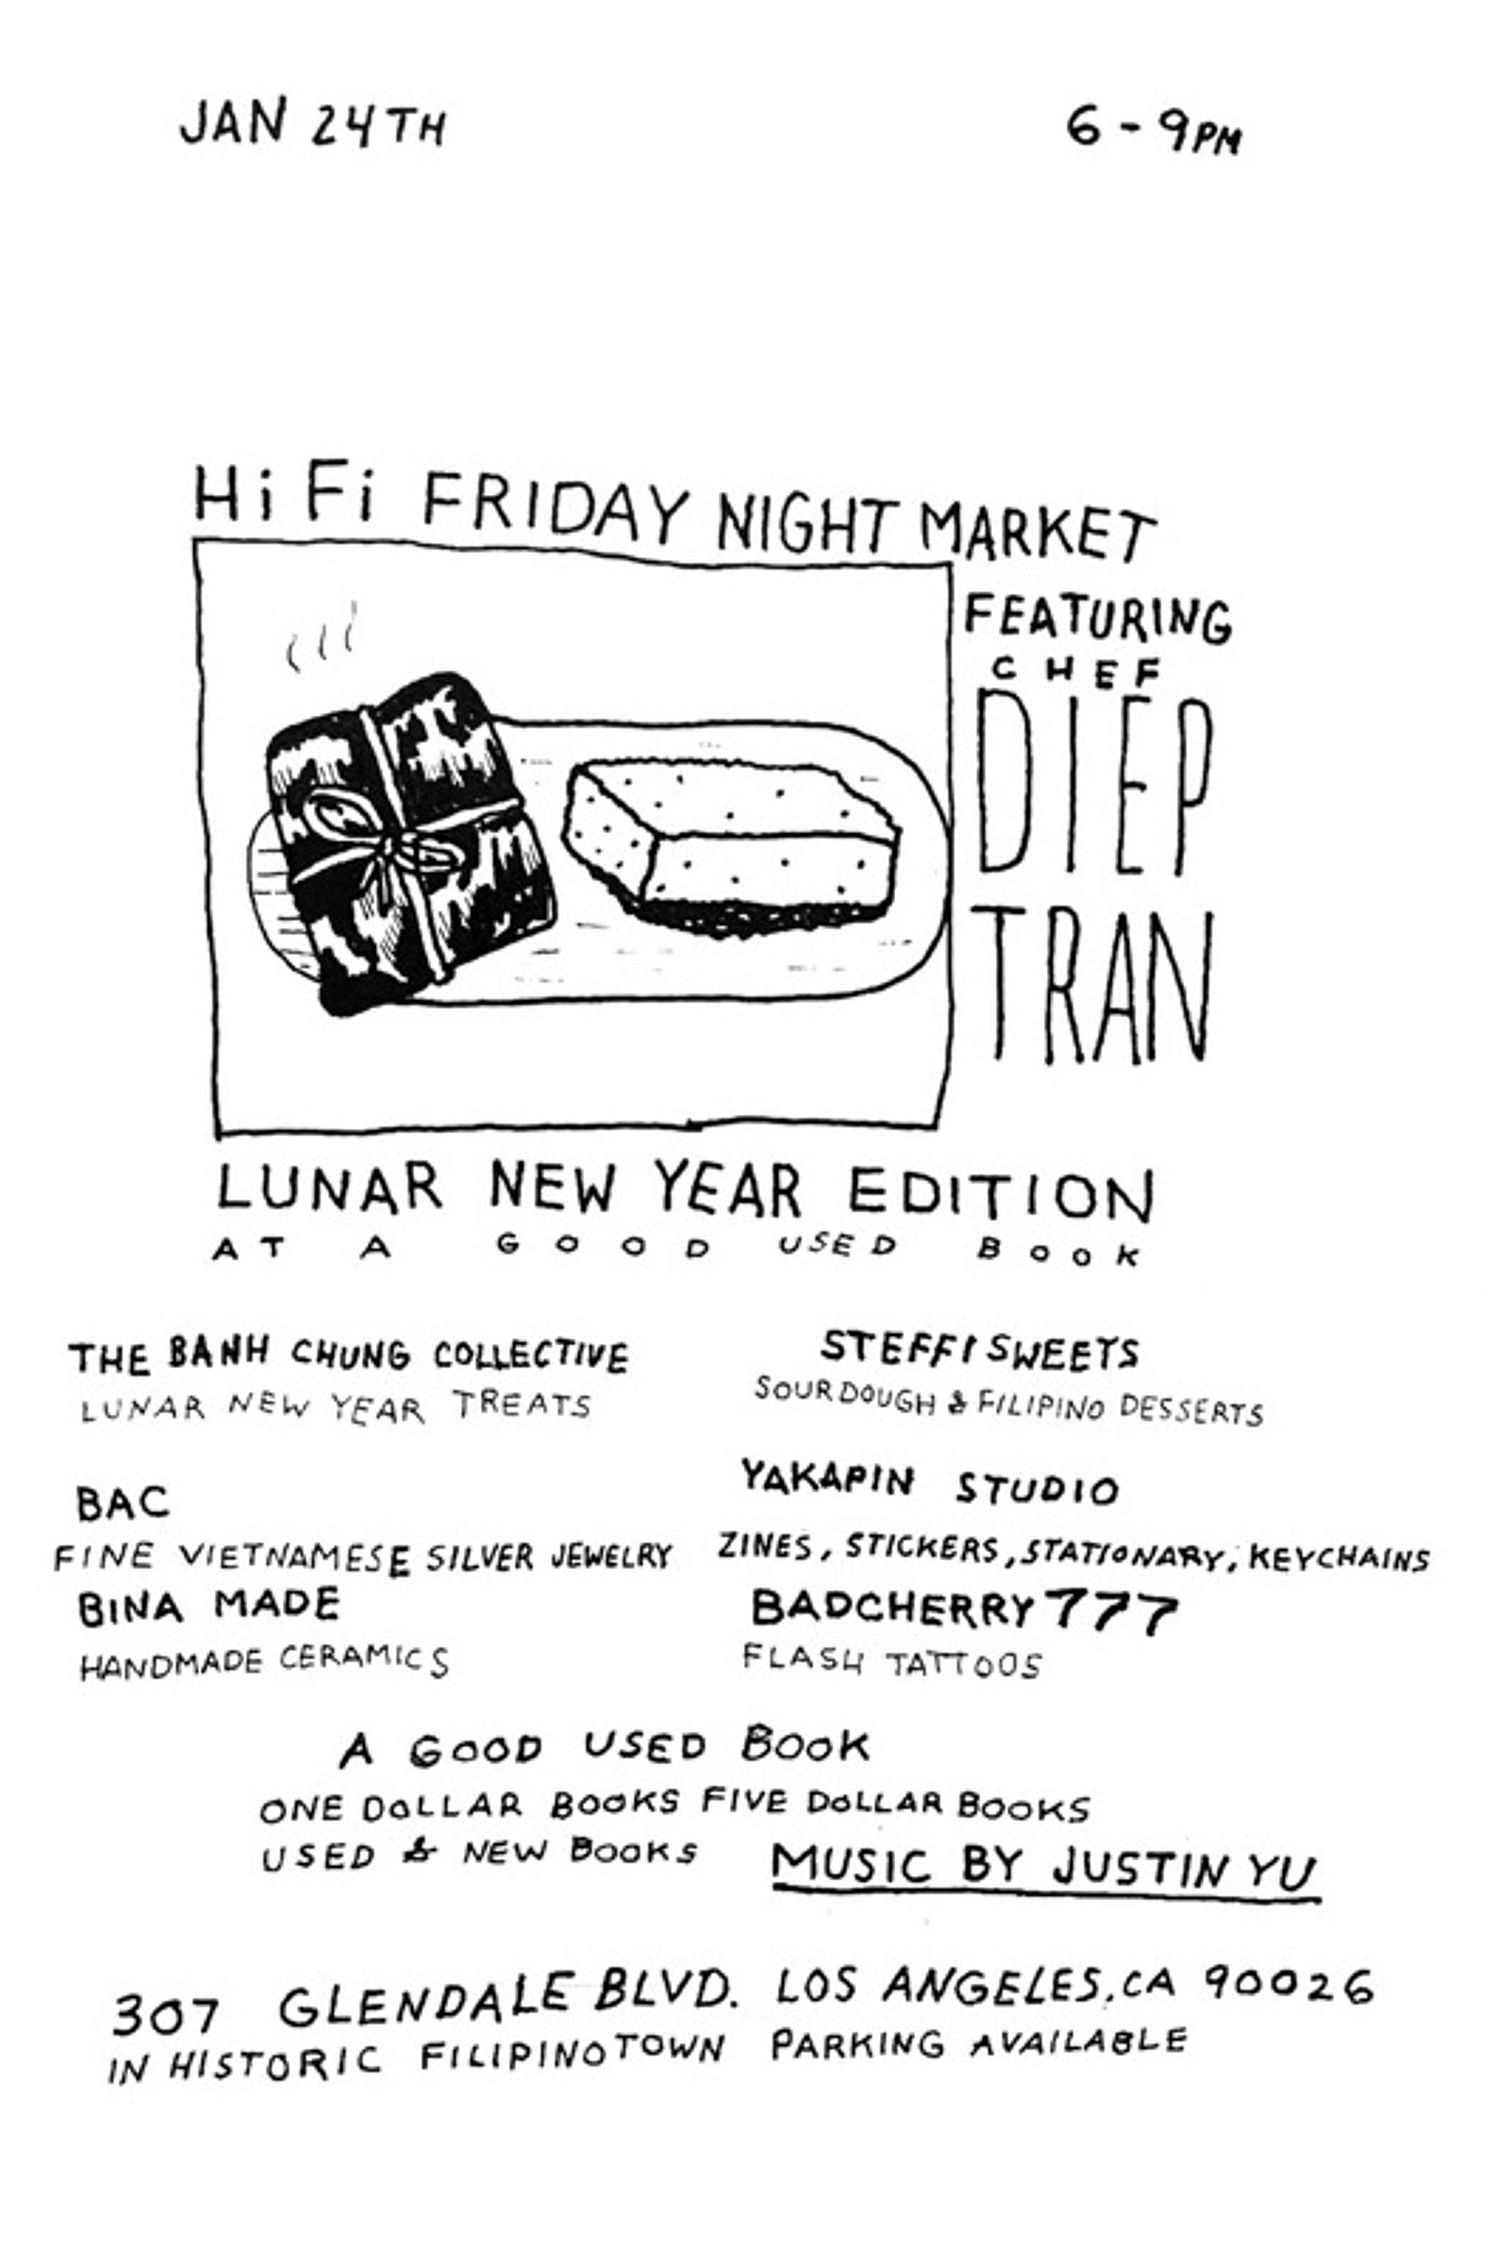 JAN 24TH
6 - 9PM
HiFi FRIDAY NIGHT MARKET
FEATURING
CHEF
DIEP
TRAN
LUNAR NEW YEAR EDITION
AT A GOOD USED BOOK
THE BANH CHUNG COLLECTIVE
LUNAR NEW YEAR TREATS
STEFFI SWEETS
SOURDOUGH & FILIPINO DESSERTS
BAC
FINE VIETNAMESE SILVER JEWELRY
YAKAPIN STUDIO
ZINES, STICKERS, STATIONARY, KEYCHAINS
BINA MADE
HANDMADE CERAMICS
BADCHERRY777
FLASH TATTOOS
A GOOD USED BOOK
ONE DOLLAR BOOKS FIVE DOLLAR BOOKS
USED & NEW BOOKS
MUSIC BY JUSTIN YU
307 GLENDALE BLVD. LOS ANGELES, CA 90026
IN HISTORIC FILIPINOTOWN PARKING AVAILABLE